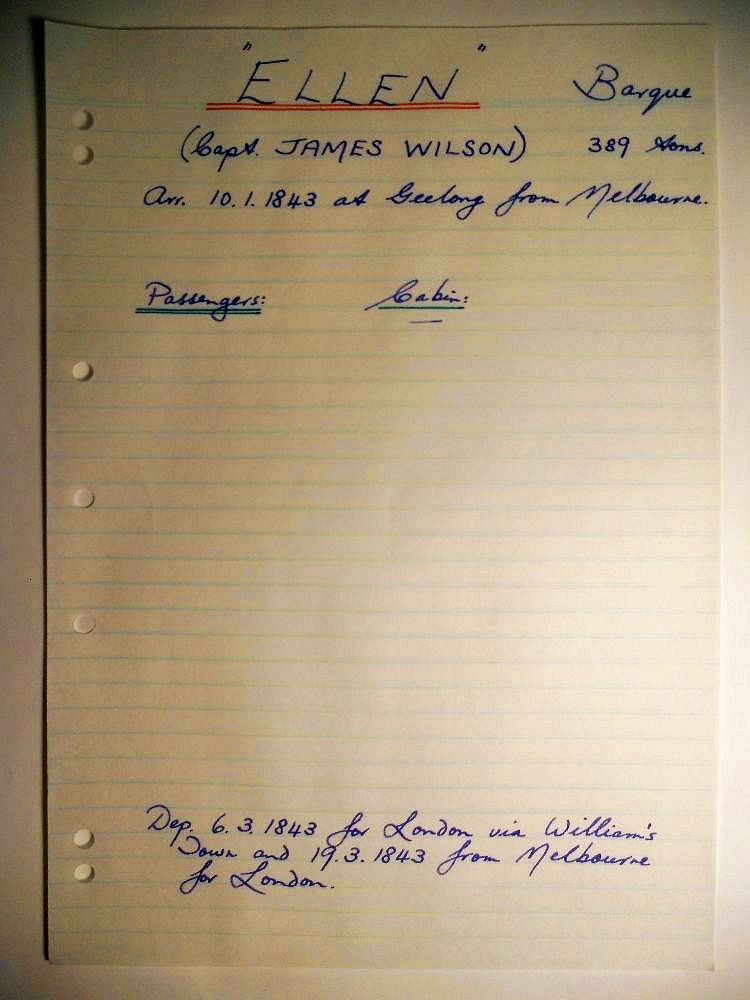 "ELLEN" Barque
(Capt. JAMES WILSON) 389 tons.
Arr. 10.1.1843 at Geelong from Melbourne.
Passengers: Cabin:
Dep. 6.3.1843 for London via William's
Town and 19.3.1843 from Melbourne
for London.